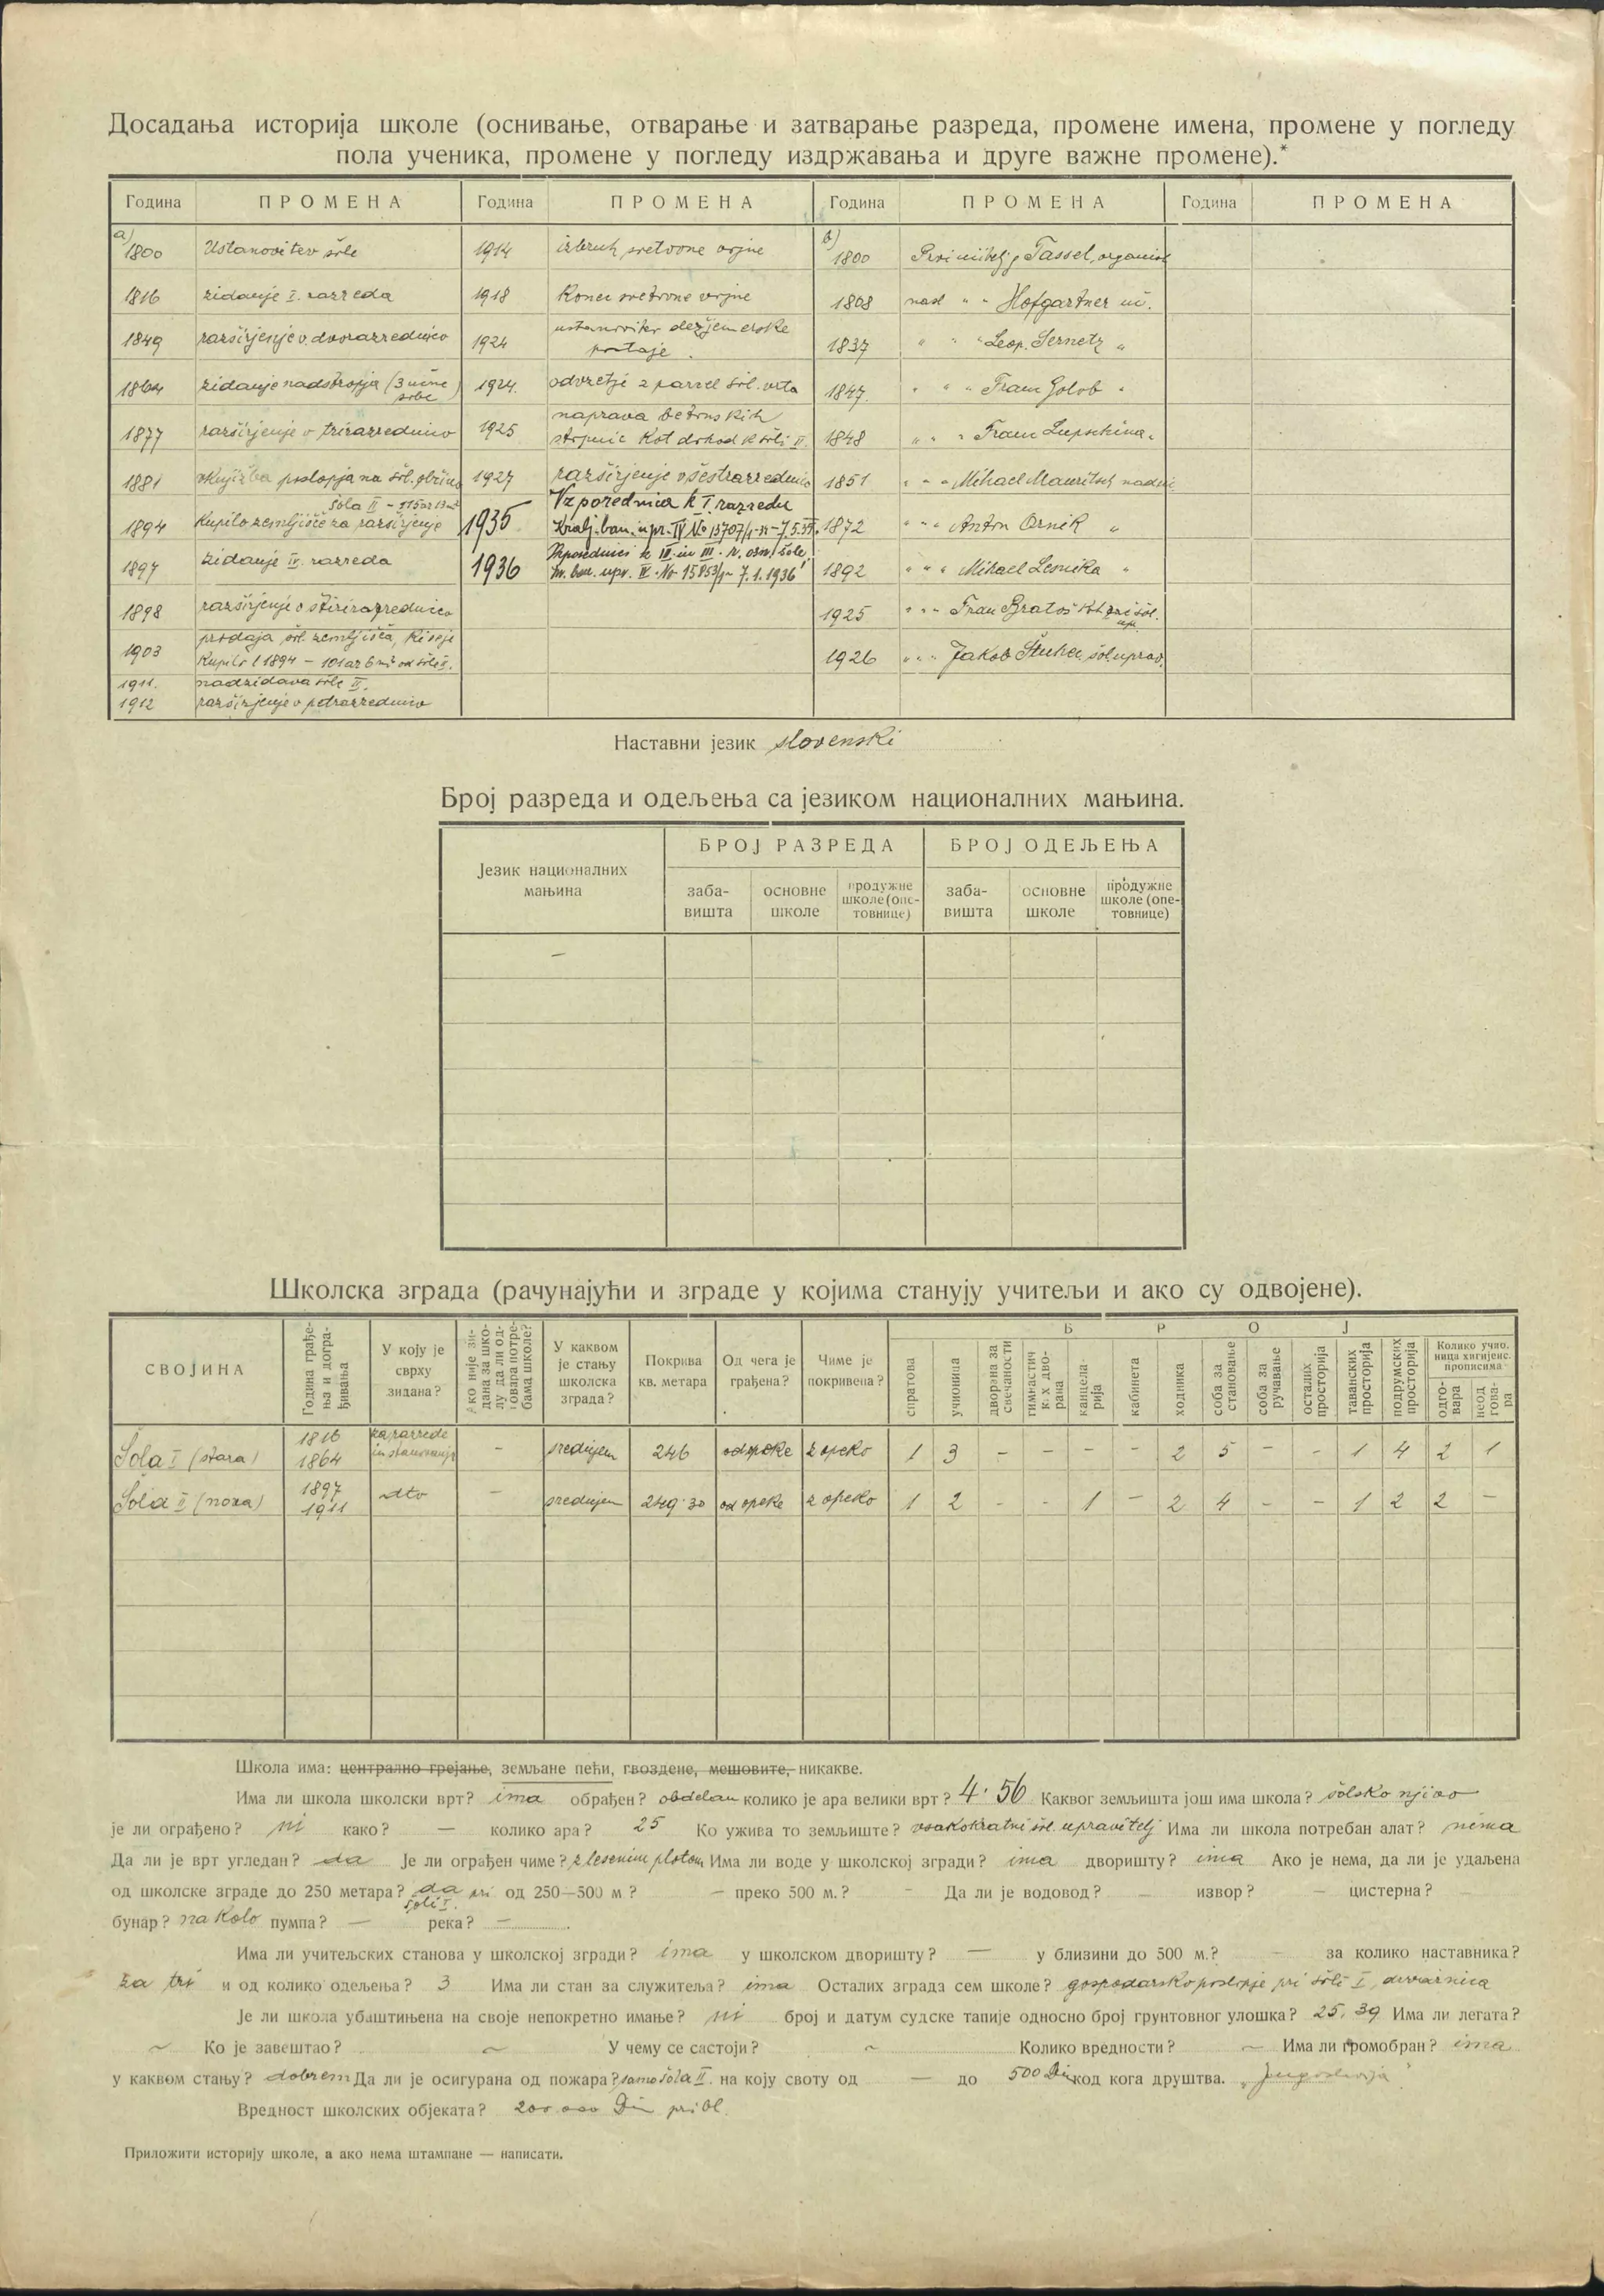 Досадања историја школе (оснивање, отварање и затварање разреда, промене имена, промене у погледу
пола ученика, промене у погледу издржавања и друге важне промене).*
Година ПРОМЕНА Година ПРОМЕНА Година ПРОМЕНА Година ПРОМЕНА
a) 1800 Ustanovitev šole 1914 izbruh svetovne vojne b) 1800 Prvi učitelj j. Tassel, organist
1816 zidanje I. razreda 1918 Konec svetovne vojne 1808 nasl " " Hofgartner uč.
1849 razširjenje v dvorazrednico 1924 ustanovitev dežjemerske postaje. 1837 " " " Leop. Sernetz "
1864 zidanje nadstropja (3 učne sobe) 1924. odvzetje 2 parcel šol. vrta 1847. " " " Franc Golob "
1877 razširjenje v trirazrednico 1925 naprava betonskih stopnic kot dohod k šoli II. 1848 " " " Franc Lupschina "
1881 vknjižba poslopja na šol. občino 1927 razširjenje v šestrazrednico 1851 " " " Mihael Mauritsch nadu.
1894 Šola II - 115 ar 13 m² Kupilo zemljišče za razširjenje 1935 Vzporednica k I. razredu Kralj. ban. upr. IV No 13707/1-34-7.5.35. 1872 " " " Anton Ornik "
1897 zidanje IV. razreda 1936 Vzporednici k II. in III. r. osn. šole, kr. ban. upr. IV. No 15853/1- 7.1.1936 1892 " " " Mihael Lesnika "
1898 razširjenje v štirirazrednico 1925 " " " Fran Bratoš kot šol. upr.
1903 prodaja šol. zemljišča, ki se je kupilo l 1894 - 101 ar 6 m² od šole II. 1926 " " " Jakob Štuhec, šol. uprav.
1911. nadzidava šole II.
1912 razširjenje v petrazrednico
Наставни језик slovenski
Број разреда и одељења са језиком националних мањина.
Језик националних мањина БРОЈ РАЗРЕДА БРОЈ ОДЕЉЕЊА
забавишта основне школе продужне школе (опетовнице) забавишта основне школе продужне школе (опетовнице)
—
Школска зграда (рачунајући и зграде у којима станују учитељи и ако су одвојене).
СВОЈИНА Година грађења и дограђивања У коју је сврху зидана? Ако није зидана за школу да ли одговара потребама школе? У каквом је стању школска зграда? Покрива кв. метара Од чега је грађена? Чиме је покривена? БРОЈ
спратова учионица дворана за свечаности гимнастичких дворана канцеларија кабинета ходника соба за становање соба за ручавање осталих просторија таванских просторија подрумских просторија Колико учионица хигијенс. прописима одговара неодговара
Šola I (stara) 1816 1864 za razrede in stanovanje - srednjem 246 od opeke z opeko 1 3 - - - - 2 5 - - 1 4 2 1
Šola II (nova) 1897 1911 dto - srednjem 249·30 od opeke z opeko 1 2 - - 1 - 2 4 - - 1 2 2 -
Школа има: централно грејање, земљане пећи, гвоздене, мешовите, никакве.
Има ли школа школски врт? ima обрађен? obdelan колико је ара велики врт? 4·56 Каквог земљишта још има школа? šolsko njivo
је ли ограђено? ni како? — колико ара? 25 Ко ужива то земљиште? vsakokratni šol. upravitelj Има ли школа потребан алат? nima
Да ли је врт угледан? da Је ли ограђен чиме? z lesenim plotom Има ли воде у школској згради? ima дворишту? ima Ако је нема, да ли је удаљена
од школске зграде до 250 метара? da pri šoli I. од 250—500 м? - преко 500 м.? - Да ли је водовод? - извор? - цистерна?
бунар? na kolo пумпа? — река? —
Има ли учитељских станова у школској згради? ima у школском дворишту? — у близини до 500 м.? - за колико наставника?
za tri и од колико одељења? 3 Има ли стан за служитеља? ima Осталих зграда сем школе? gospodarsko poslopje pri šoli I, drvarnica
Је ли школа убаштињена на своје непокретно имање? ni број и датум судске тапије односно број грунтовног улошка? 25, 39 Има ли легата?
~ Ко је завештао? ~ У чему се састоји? ~ Колико вредности? ~ Има ли громобран? ima
у каквом стању? dobrem Да ли је осигурана од пожара? samo šola II. на коју своту од — до 500 Din код кога друштва. "Jugoslavija"
Вредност школских објеката? 200.000 Din pribl.
Приложити историју школе, а ако нема штампане — написати.